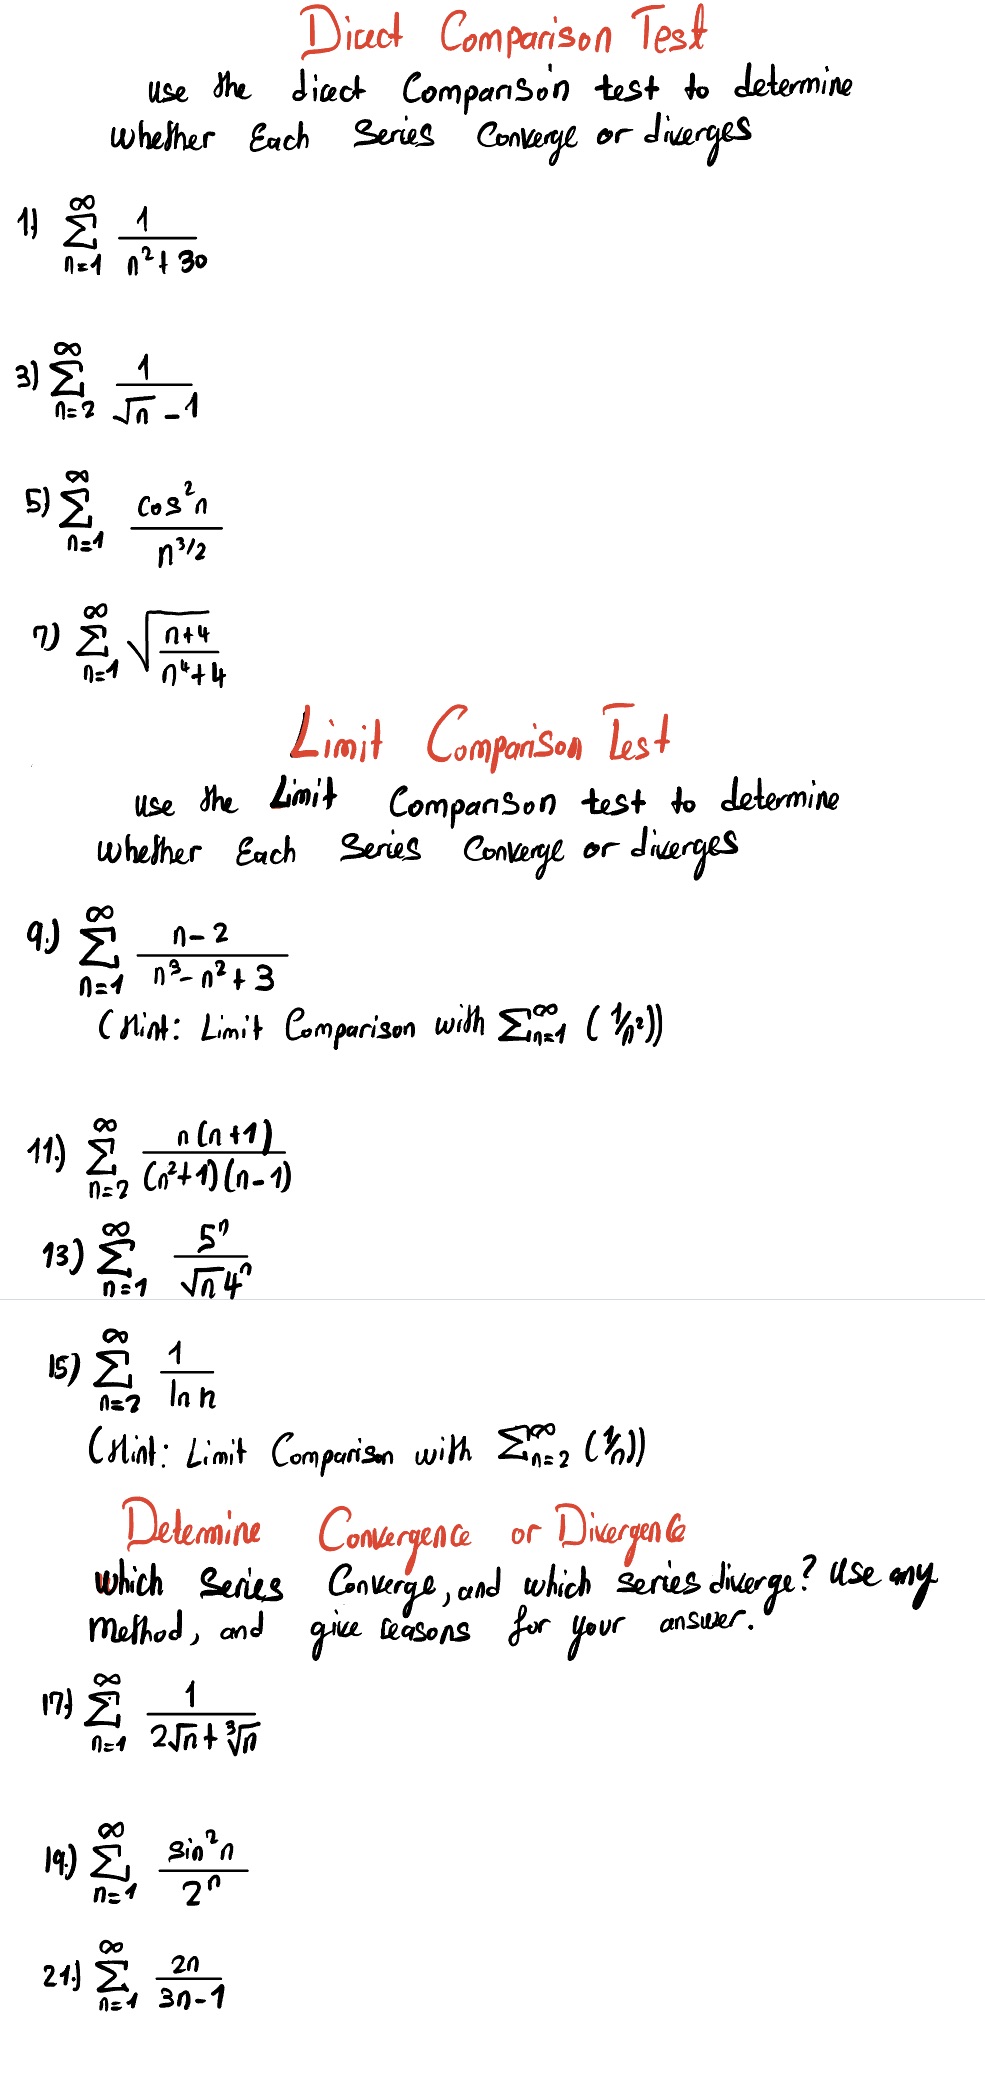 Direct Comparison Test
use the direct Comparison test to determine
whether Each Series Converge or diverges
1) ∑_{n=1}^{∞} 1/(n²+30)
3) ∑_{n=2}^{∞} 1/(√n - 1)
5) ∑_{n=1}^{∞} cos²n / n^{3/2}
7) ∑_{n=1}^{∞} √((n+4)/(n⁴+4))
Limit Comparison Test
use the Limit Comparison test to determine
whether Each Series Converge or diverges
9.) ∑_{n=1}^{∞} (n-2)/(n³-n²+3)
(Hint: Limit Comparison with ∑_{n=1}^{∞} (1/n²))
11.) ∑_{n=2}^{∞} n(n+1)/((n²+1)(n-1))
13.) ∑_{n=1}^{∞} 5ⁿ/(√n 4ⁿ)
15) ∑_{n=2}^{∞} 1/ln n
(Hint: Limit Comparison with ∑_{n=2}^{∞} (1/n))
Determine Convergence or Divergence
which Series Converge, and which series diverge? Use any
method, and give reasons for your answer.
17.) ∑_{n=1}^{∞} 1/(2√n + ∛n)
19.) ∑_{n=1}^{∞} sin²n / 2ⁿ
21.) ∑_{n=1}^{∞} 2n/(3n-1)